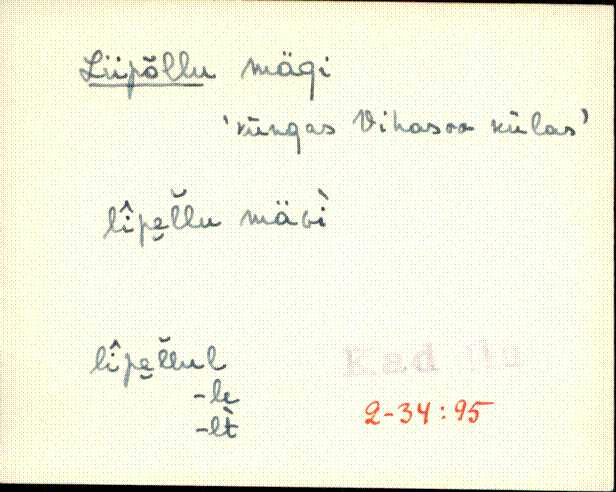 Liipõllu mägi
'küngas Vihasoo külas'
lîpe̮l̆lu mäɢì
lîpe̮l̆lul
-le
-lt̀
Kad
2-34:95